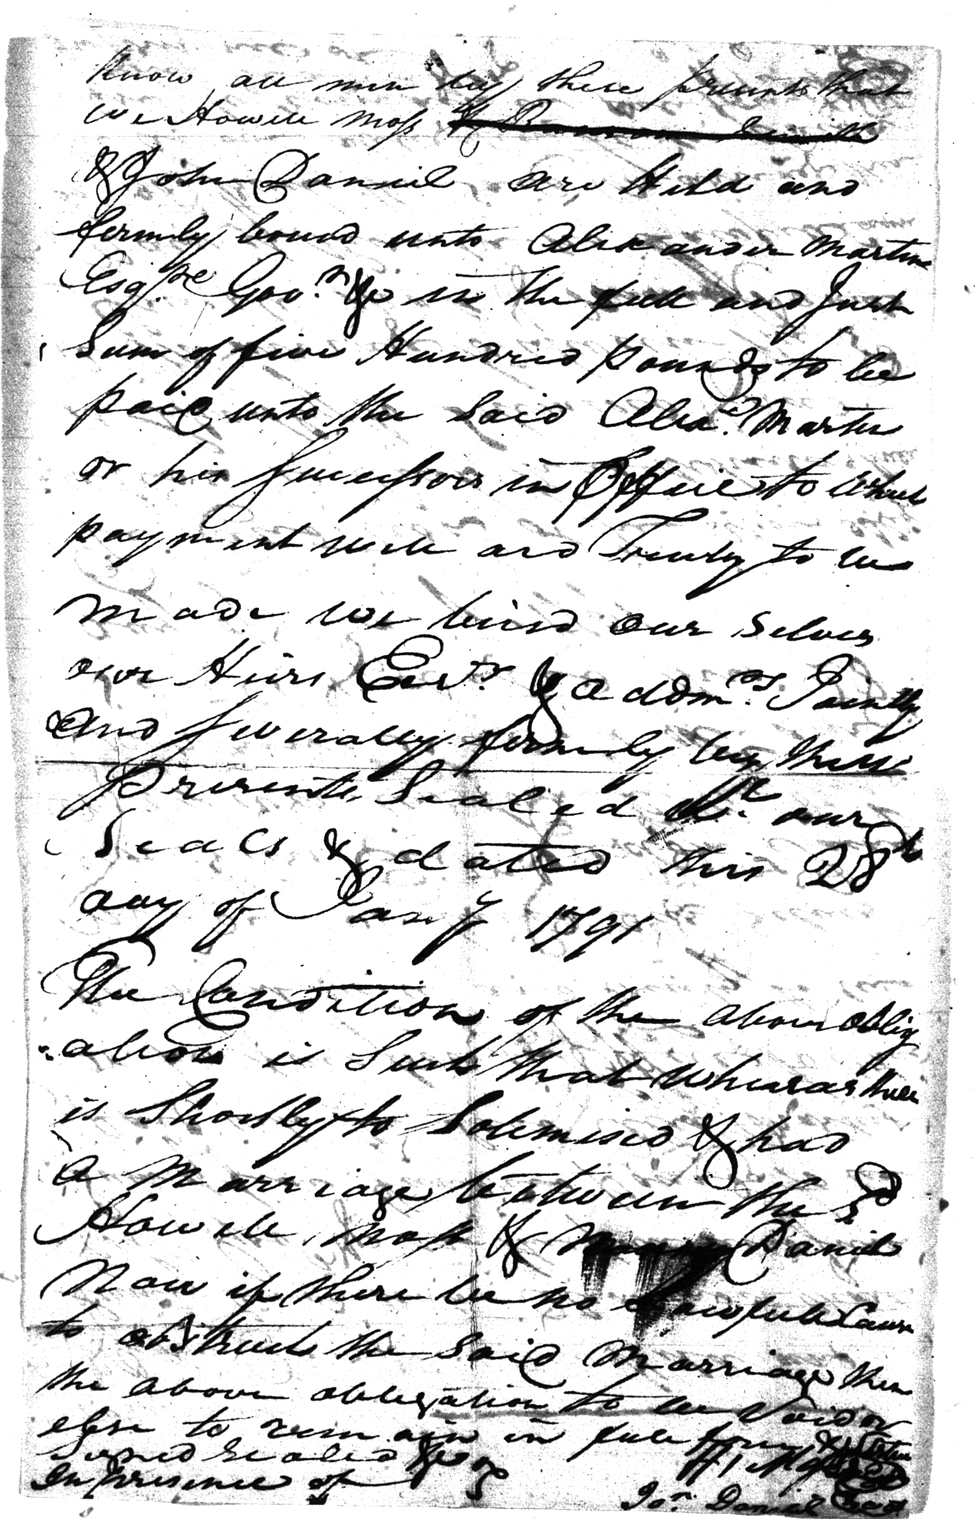 Know all men by these presents that
we Howell Moss
& John Daniel are Held and
firmly bound unto Alexander Martin
Esqre Govr &c in the full and Just
Sum of five Hundred pounds to be
paid unto the Said Alexr. Martin
or his Successors in Office to which
payment well and Truly to be
made we bind our selves
our Heirs Exrs. & addmrs. Jointly
and Severally firmly by these
Presents Sealed wt. our
Seals & dated this 28th
day of Jany 1791
The Condition of the above oblig
ation is Such that whereas there
is Shortly to Solemised & had
a Marriage between the Sd
Howell Moss & Daniel
Now if there be no Lawfull Cause
to obstruct the Said Marriage then
the above obligation to be Void or
else to remain in full
Signed Sealed &c
In presence of
Jon. Daniel Seal